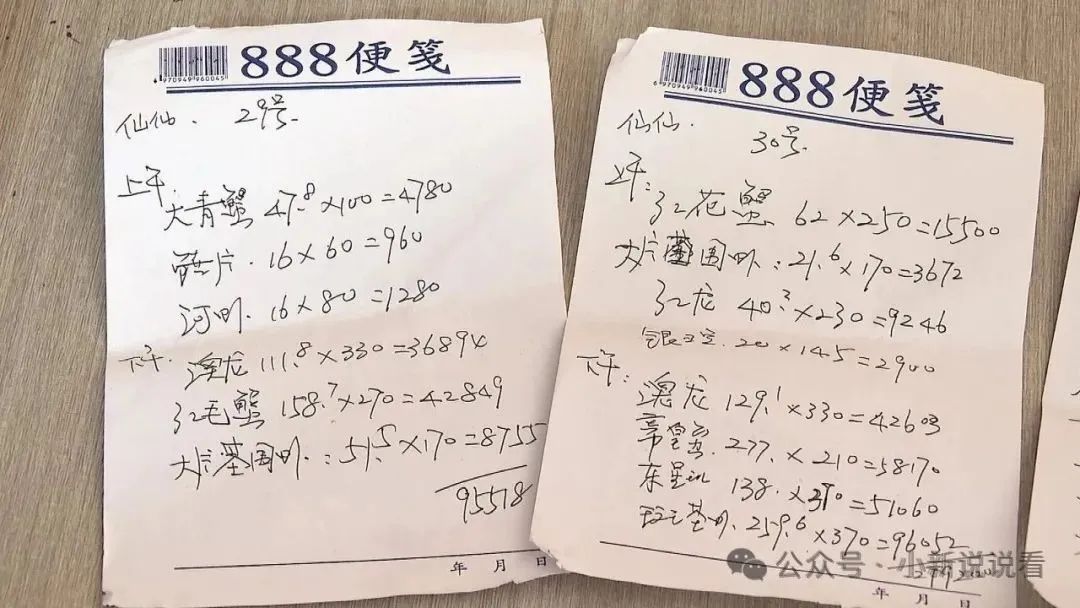 6970949960045
888便笺
仙仙. 29号.
上午.
大青蟹 47.8×100=4780
片. 16×60=960
河虾. 16×80=1280
下午.
澳龙 111.8×330=36894
红毛蟹 158.7×270=42849
大片基围虾:51.5×170=8755
95518
年 月 日
6970949960045
888便笺
仙仙. 30号.
上午:
红花蟹 62×250=15500
大片基围虾:21.6×170=3672
红龙 40.2×230=9246
银 20×145=2900
下午:
澳龙 129.1×330=42603
帝皇蛮. 277.×210=58170
东星 138.×370=51060
基虾. 259.6×370=96052
年 月 日
公众号·小新说说看